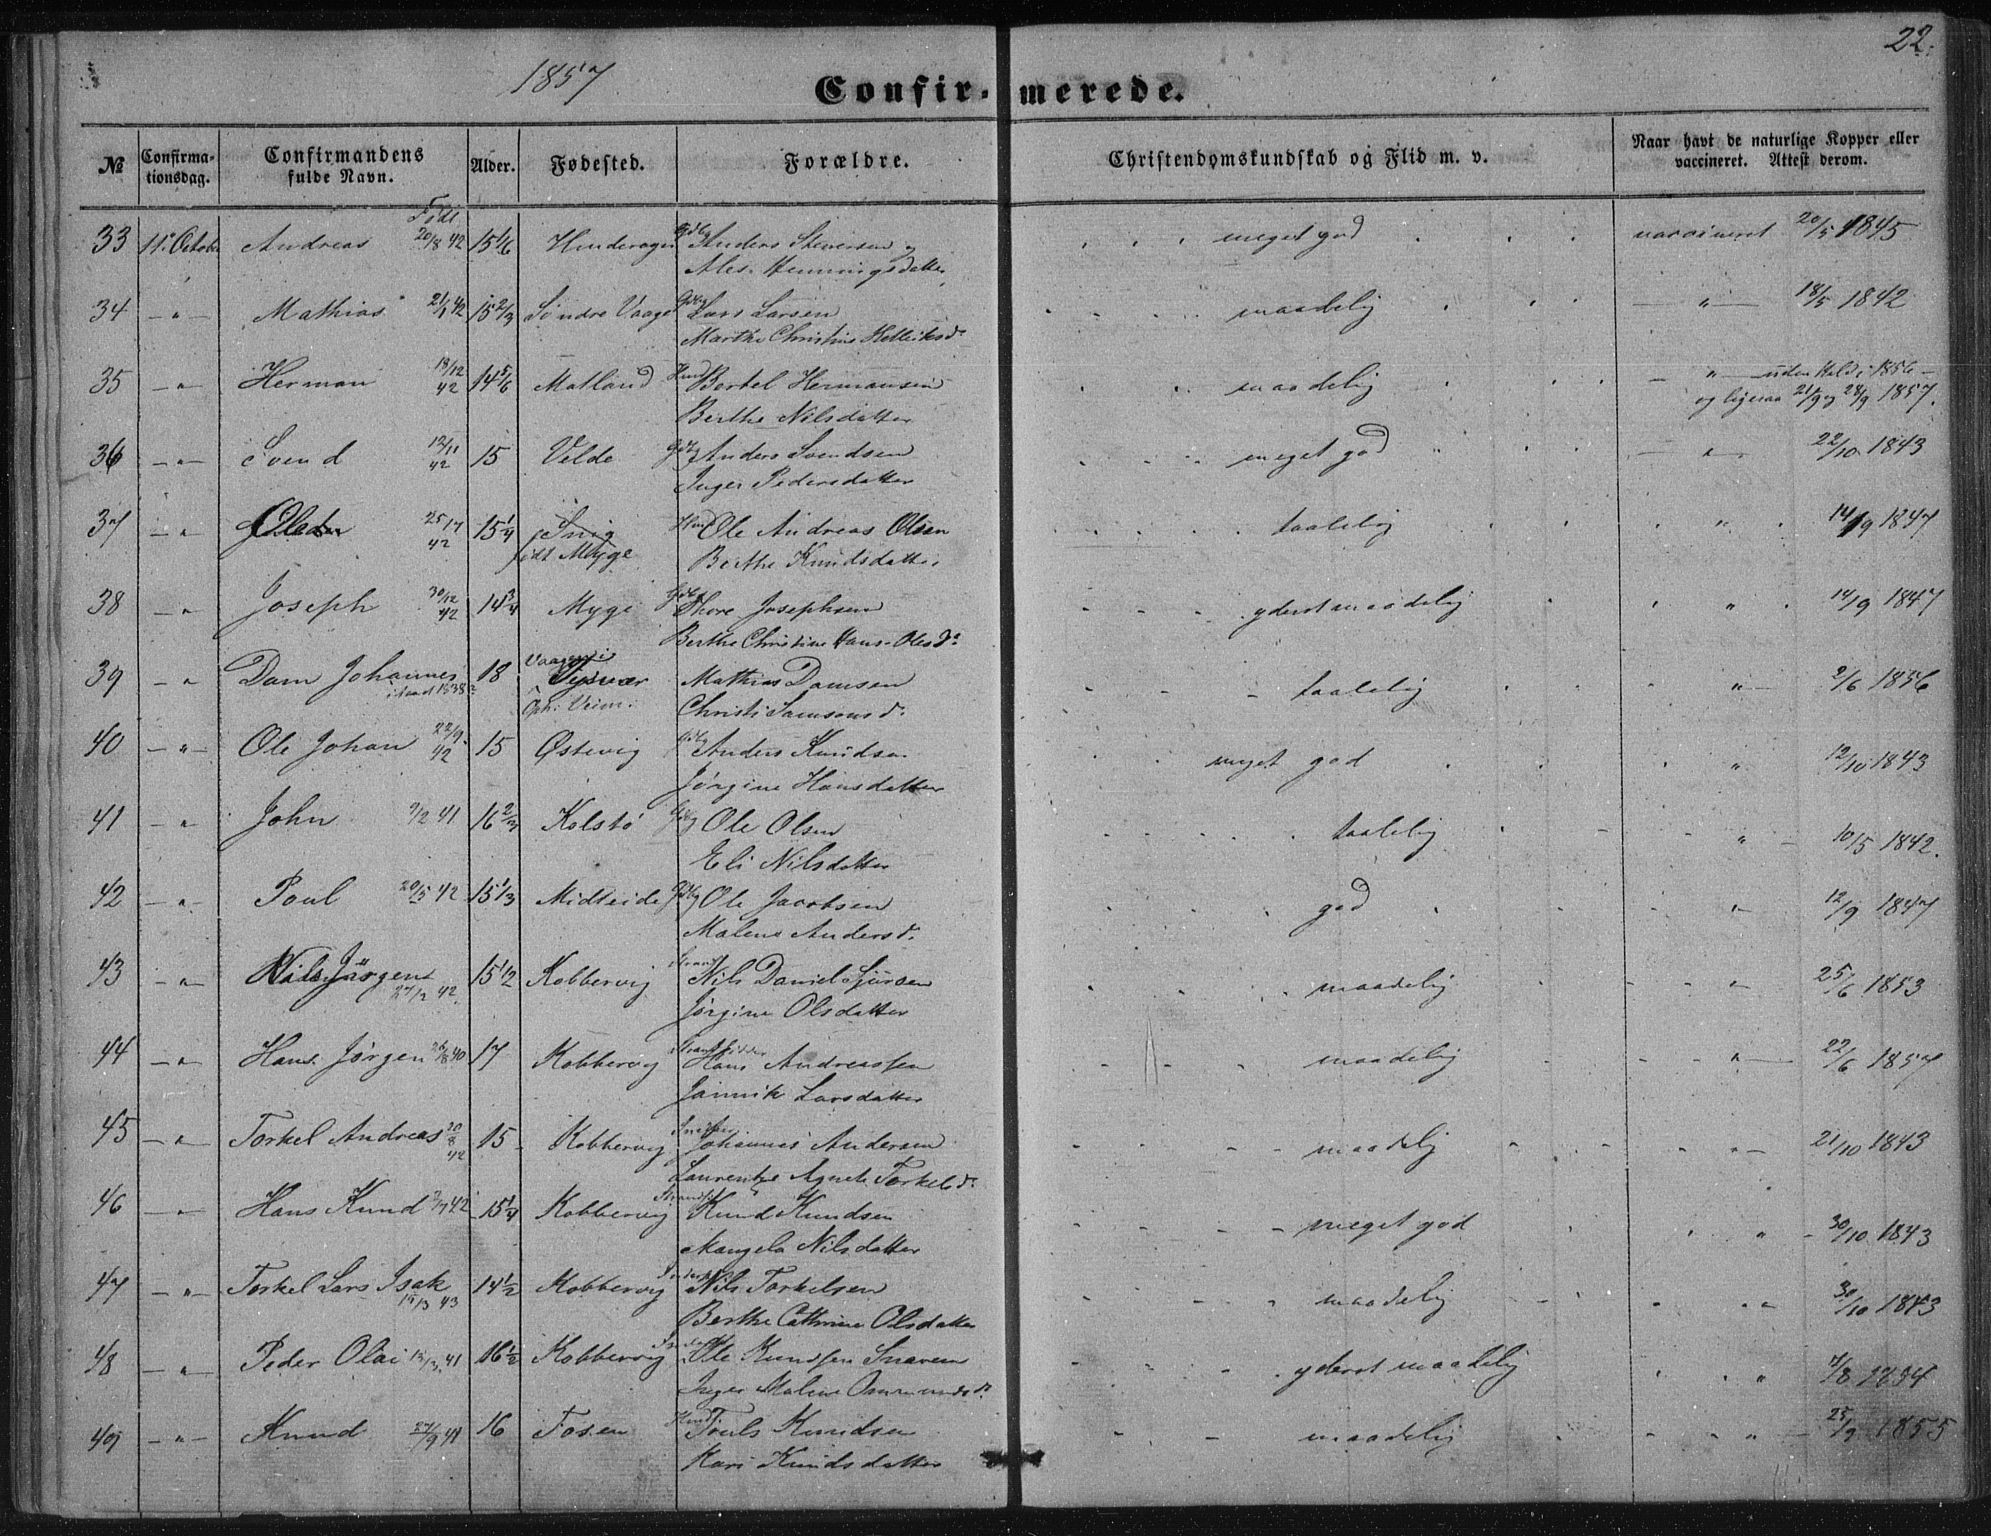 22.
1857
Confirmerede.
№ Confirma-tionsdag. Confirmandens fulde Navn. Alder. Fødested. Forældre. Christendomskundskab og Flid m. v. Naar havt de naturlige Kopper eller vaccineret. Attest derom.
Født
33 11. October Andreas 20/8 42 15 1/6 Gdbr Anders meget god vaccineret 20/5 1845
Henningsdatter
34 - " - Mathias 42 15 2/3 Søndre Vaage Gdbr Lars Larsen maadelig - " - 18/5 1842
Marthe Christine
35 - " Herman 13/12 42 14 5/6 Matland Huusm Bertel Hermansen maadelig - " - uden Held i 1856 -
Berthe Nilsdatter og ligesaa 21/9 og 28/9 1857.
36 - " - Svend 12/11 42 15 Velde Gdbr Anders Svendsen meget god - " - 22/10 1843
Inger Pedersdatter
37 - " 25/7 42 15 1/4 Huusm Ole Andreas Olsen taalelig " 14/9 1847
født Myge Berthe Knudsdatter
38 - " Joseph 30/12 42 14 3/4 Myge Gdbr Thore Josephsen yderst maadelig " 14/9 1847
Berthe Christine Hans-Olesd.
39 - " Dam Johannes 18 Mathias Damsen taalelig " - 2/6 1856
Christi Samsonsd.
40 - " - Ole Johan 22/9 42 15 Østevig Gdbr Anders Knudsen meget god " 12/10 1843
Jørgine Hansdatter
41 - " John 7/2 41 16 2/3 Kolstø Gdbr Ole Olsen taalelig " - 10/5 1842.
Eli Nilsdatter
42 - " - Poul 20/5 42 15 1/3 Midteide Gdbr Ole Jacobsen god " 12/9 1847
Malene Andersd.
43 - " Nils Jørgen 27/2 42. 15 1/2 Kobbervig Nils Daniel Sjursen maadelig - " - 25/6 1853
Jørgine Olsdatter
44 - " Hans Jørgen 40 17 Kobbervig Strandsidder Hans Andreassen maadelig - " - 22/6 1857
Jannik Larsdatter
45 - " Torkel Andreas 20/8 42 15 Kobbervig Johannes Andersen maadelig - " - 21/10 1843
Laurentze Agnete Torkelsd.
46 - " - Hans Knud 42 15 1/4 Kobbervig Knud Knudsen meget god " - 30/10 1843
Mangela Nilsdatter
47 - " - Torkel Lars Isak 43 14 1/2 Kobbervig Nils Torkelsen maadelig " 30/10 1843
Berthe Cathrine Olsdatter
48 - " Peder Olai 41 16 1/2 Kobbervig Ole Knudsen yderst maadelig " 4/8 1854
Inger Malene
49 - " - Knud 27/9 41 16 Fosen Knudsen maadelig " -  1855
Kari Knudsdatter